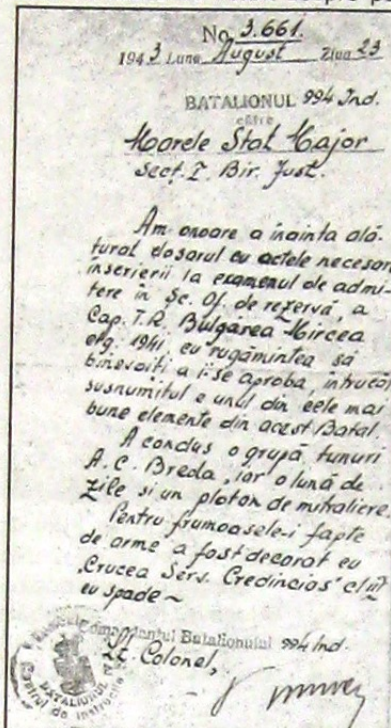 No 3.661.
1943 Luna August Ziua 23
BATALIONUL 994 Ind.
către
Marele Stat Major
Secț. I. Bir. Just.
Am onoare a înainta ală-
turat dosarul cu actele necesar
înscrierii la examenul de admi-
tere în Șc. Of. de rezervă, a
Cap. T.R. Bulgarea Mircea
ctg. 1941, cu rugămintea să
binevoiți a i-se aproba, întrucâ
susnumitul e unul din cele mai
bune elemente din acest Batal.
A condus o grupă tunuri
A.C. Breda, iar o lună de
zile și un pluton de mitraliere.
Pentru frumoasele-i fapte
de arme a fost decorat cu
"Crucea Serv. Credincios" cl III
cu spade ~
Comandantul Batalionului 994 Ind.
Lt. Colonel,
BATALIONUL
Centrul de Instrucție